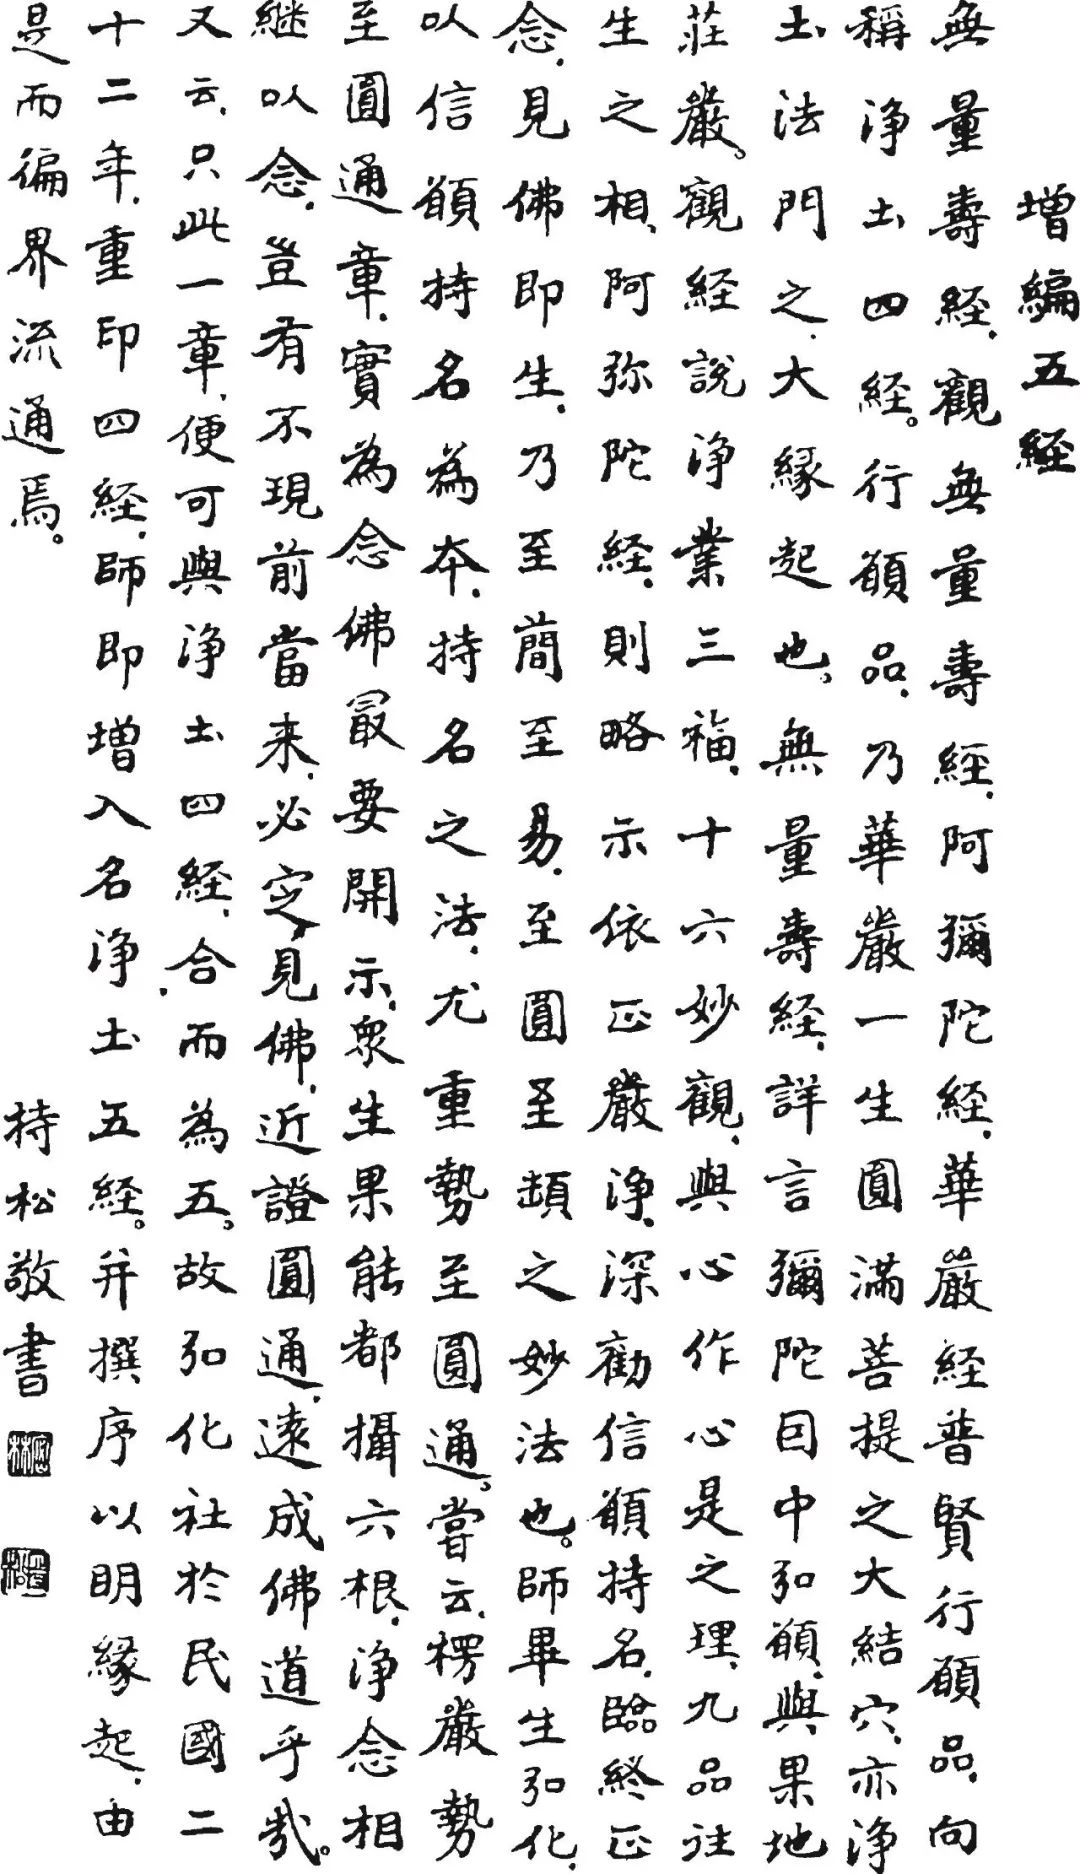 增編五経
無量壽経,觀無量壽経,阿彌陀経,華嚴経普賢行願品,向
稱淨土四経。行願品,乃華嚴一生圓滿菩提之大結穴,亦淨
土法門之大緣起也。無量壽経,詳言彌陀因中弘願,與果地
莊嚴。觀経說淨業三福,十六妙觀,與心作心是之理,九品往
生之相,阿弥陀経,則略示依正嚴淨,深勸信願持名,臨終正
念,見佛即生,乃至簡至易,至圓至頓之妙法也。師畢生弘化,
以信願持名為本,持名之法,尤重勢至圓通。嘗云,楞嚴勢
至圓通章,實為念佛最要開示,衆生果能都攝六根,淨念相
継以念,豈有不現前當来,必定見佛,近證圓通,遠成佛道乎哉。
又云,只此一章,便可與淨土四経,合而為五。故弘化社於民國二
十二年,重印四経,師即增入名淨土五経。并撰序以明緣起,由
是而徧界流通焉。
持松敬書